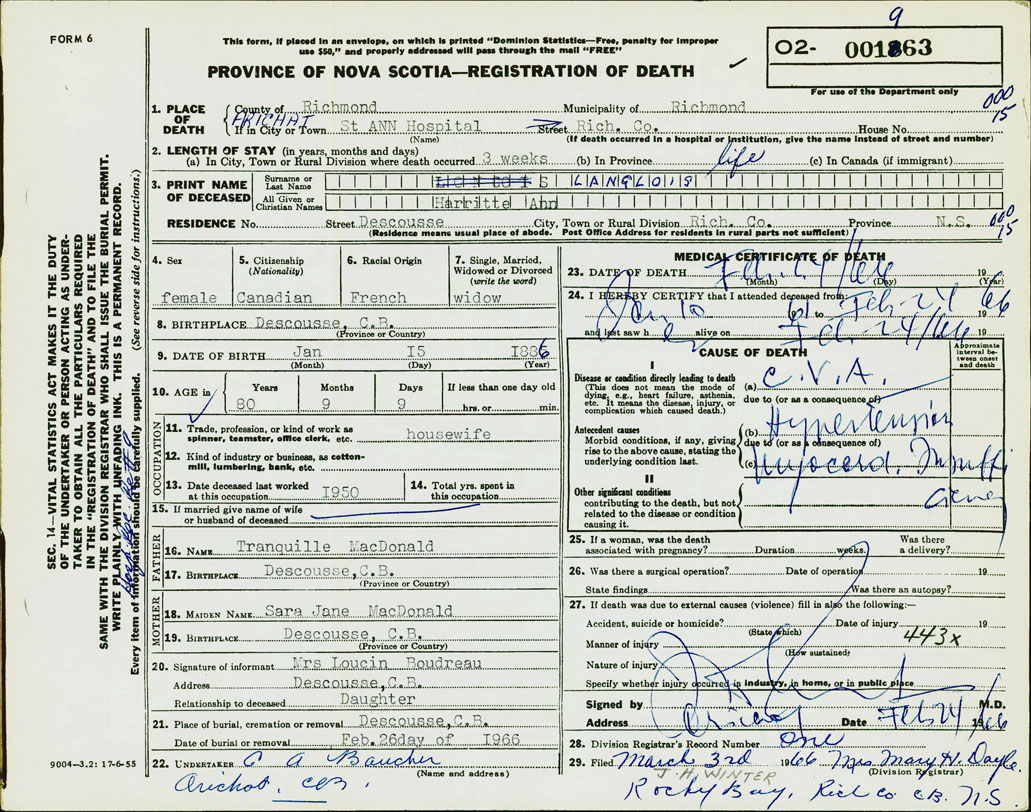 FORM 6
This form, if placed in an envelope, on which is printed "Dominion Statistics—Free, penalty for improper
use $50," and properly addressed will pass through the mail "FREE"
PROVINCE OF NOVA SCOTIA—REGISTRATION OF DEATH
9
O2- 001863
For use of the Department only
SEC. 14—VITAL STATISTICS ACT MAKES IT THE DUTY
OF THE UNDERTAKER OR PERSON ACTING AS UNDER-
TAKER TO OBTAIN ALL THE PARTICULARS REQUIRED
IN THE "REGISTRATION OF DEATH" AND TO FILE THE
SAME WITH THE DIVISION REGISTRAR WHO SHALL ISSUE THE BURIAL PERMIT.
WRITE PLAINLY WITH UNFADING INK. THIS IS A PERMANENT RECORD.
Every item of information should be carefully supplied. (See reverse side for instructions.)
1. PLACE OF DEATH County of Richmond Municipality of Richmond 000 15
ARICHAT
If in City or Town St ANN Hospital Street Rich. Co. House No.
(Name) (If death occurred in a hospital or institution, give the name instead of street and number)
2. LENGTH OF STAY (in years, months and days)
(a) In City, Town or Rural Division where death occurred 3 weeks (b) In Province life (c) In Canada (if immigrant)
3. PRINT NAME OF DECEASED Surname or Last Name LANGLOIS
All Given or Christian Names Harritte Ann
RESIDENCE No. Street Descousse City, Town or Rural Division Rich. Co. Province N.S. 000 15
(Residence means usual place of abode. Post Office Address for residents in rural parts not sufficient)
4. Sex 5. Citizenship (Nationality) 6. Racial Origin 7. Single, Married, Widowed or Divorced (write the word)
female Canadian French widow
8. BIRTHPLACE Descousse, C.B.
(Province or Country)
9. DATE OF BIRTH Jan I5 I886
(Month) (Day) (Year)
10. AGE in Years Months Days If less than one day old
80 9 9 hrs. or min.
OCCUPATION
11. Trade, profession, or kind of work as spinner, teamster, office clerk, etc. housewife
12. Kind of industry or business, as cotton-mill, lumbering, bank, etc.
13. Date deceased last worked at this occupation I950 14. Total yrs. spent in this occupation
15. If married give name of wife or husband of deceased
FATHER
16. NAME Tranquille MacDonald
17. BIRTHPLACE Descousse,C.B.
(Province or Country)
MOTHER
18. MAIDEN NAME Sara Jane MacDonald
19. BIRTHPLACE Descousse, C.B.
(Province or Country)
20. Signature of informant Mrs Loucin Boudreau
Address Descousse,C.B.
Relationship to deceased Daughter
21. Place of burial, cremation or removal Descousse,C.B.
Date of burial or removal Feb.26day of I966
22. UNDERTAKER C A Boucher
(Name and address)
Arichat CB.
9004—3.2: 17-6-55
MEDICAL CERTIFICATE OF DEATH
23. DATE OF DEATH Feb 24/66 19
(Month) (Day) (Year)
24. I HEREBY CERTIFY that I attended deceased from
to Feb 24 66
and last saw h er alive on Feb. 24/66 19
CAUSE OF DEATH
Approximate interval between onset and death
I
Disease or condition directly leading to death (a) C.V.A.
(This does not mean the mode of dying, e.g., heart failure, asthenia, etc. It means the disease, injury, or complication which caused death.)
due to (or as a consequence of)
Antecedent causes
Morbid conditions, if any, giving rise to the above cause, stating the underlying condition last.
(b) Hypertension
due to (or as a consequence of)
(c) Myocard. Insuffi
ciency
II
Other significant conditions
contributing to the death, but not related to the disease or condition causing it.
25. If a woman, was the death associated with pregnancy? Duration weeks. Was there a delivery?
26. Was there a surgical operation? Date of operation 19
State findings Was there an autopsy?
27. If death was due to external causes (violence) fill in also the following:—
Accident, suicide or homicide? Date of injury 19
(State which)
443x
Manner of injury
(How sustained)
Nature of injury
Specify whether injury occurred in industry, in home, or in public place
Signed by M.D.
Address Arichat Date Feb 24 1966
28. Division Registrar's Record Number one
29. Filed March 3rd 1966 Mrs Mary H. Doyle.
(Division Registrar)
J. H. WINTER
Rocky Bay, Rich Co CB. N.S